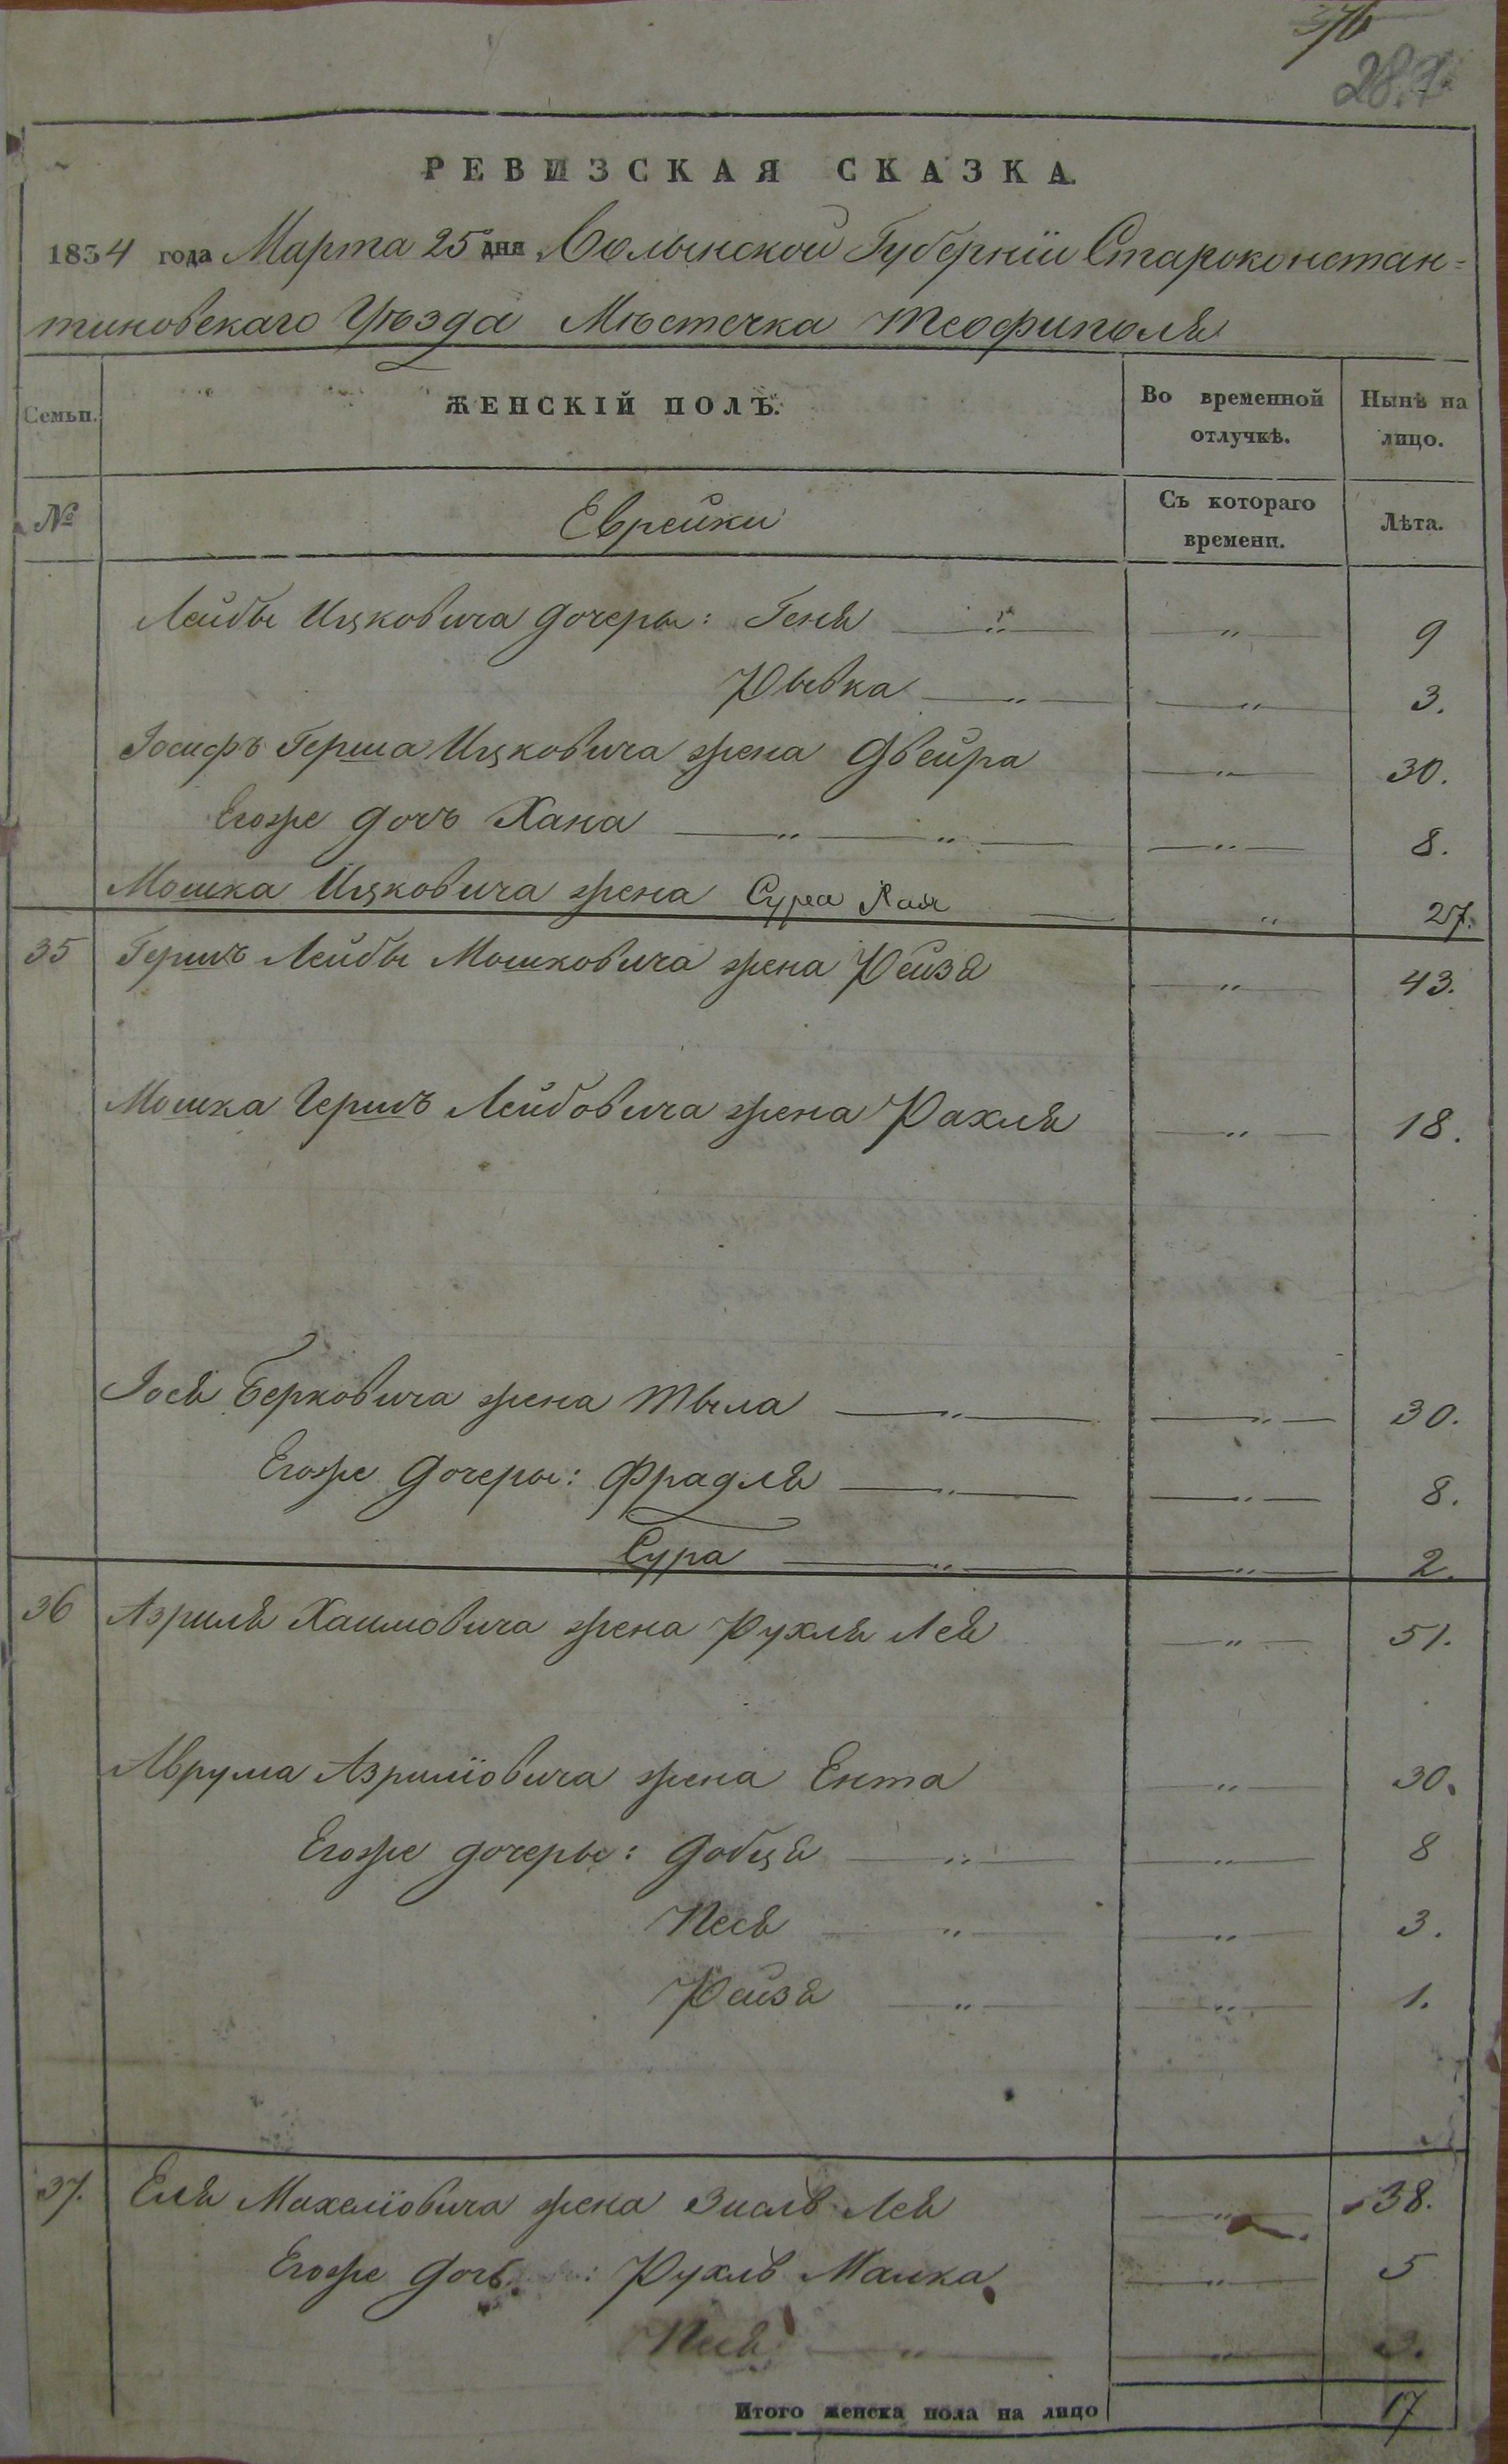 РЕВИЗСКАЯ СКАЗКА.
1834 года Марта 25 дня Волынской Губернїи Староконстан=
тиновскаго Уѣзда Мѣстечка Теофиполя
Семьи. ЖЕНСКІЙ ПОЛЪ. Во временной отлучкѣ. Нынѣ на лицо.
№ Еврейки Съ котораго времени. Лѣта.
Лейбы Ицковича дочеры: Геня — " — — " — 9
Рывка — " — — " — 3.
Іосифъ Герша Ицковича жена Двейра — " — 30.
Егоже дочъ Хана — " — " — — " — 8.
Мошка Ицковича жена Сура Хая — " 27.
35 Гершъ Лейбы Мошковича жена Рейзя — " — 43.
Мошка Гершъ Лейбовича жена Рахля — " — 18.
Іося Берковича жена Тыла — " — — " — 30.
Егоже дочеры: Фрадля — " — — " — 8.
Сура — " — — " — 2.
36 Азриля Хаимовича жена Рухля Лея — " — 51.
Аврума Азрилїовича жена Ента — " — 30.
Егоже дочеры: Добця — " — — " — 8
Песя — " — — " — 3.
Рейзя — " — — " — 1.
37. Еля Михелїовича жена Зислѣ Лея — " — 38.
Егоже дочь : Рухлѣ Малка — " — 5
— " — — " —
Итого женска пола на лицо 17